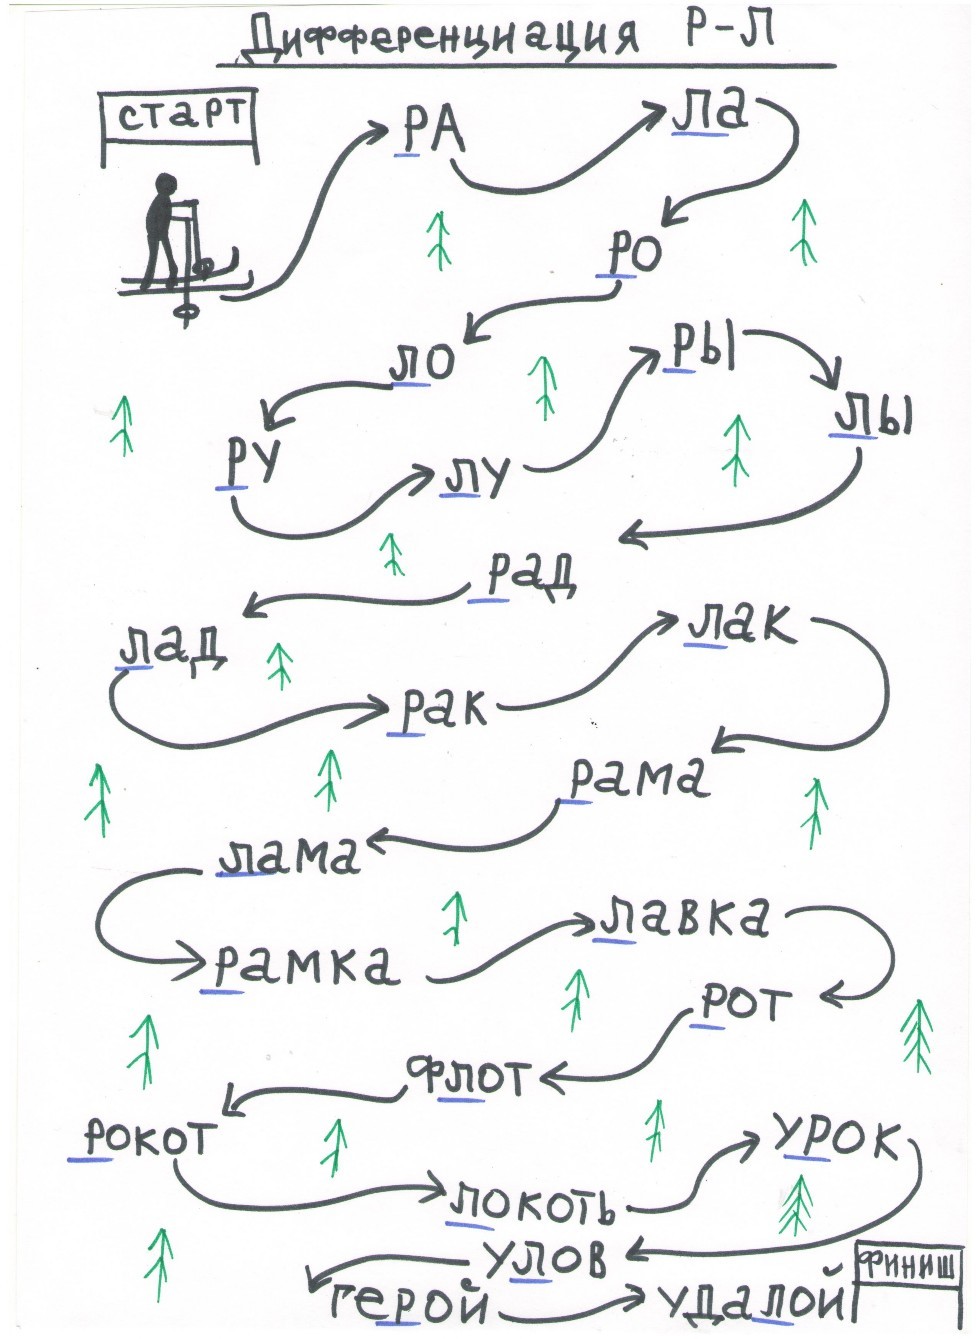 Дифференциация Р-Л
старт
РА
ла
РО
ЛО
РЫ
ЛЫ
РУ
ЛУ
рад
лад
лак
рак
рама
лама
лавка
рамка
рот
флот
рокот
урок
локоть
улов
финиш
герой
удалой